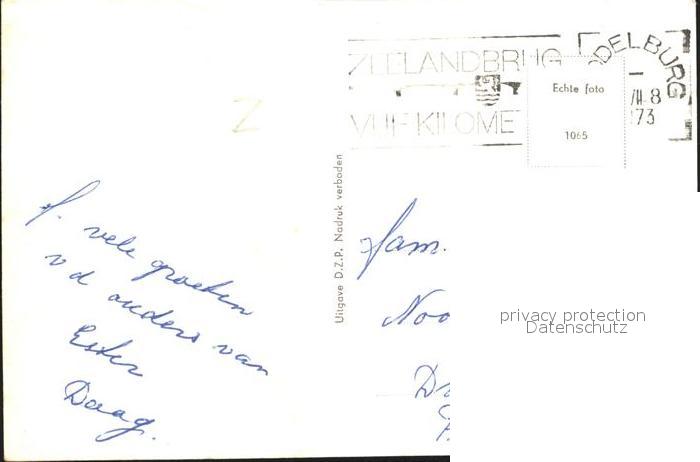 ZEELANDBRUG
VIJF KILOME
DELBURG
VII.8
73
Echte foto
1065
Uitgave D.Z.P. Nadruk verboden
f. vele groeten
v d ouders van
Ester
Daag.
fam.
Noo
Dr
privacy protection
Datenschutz